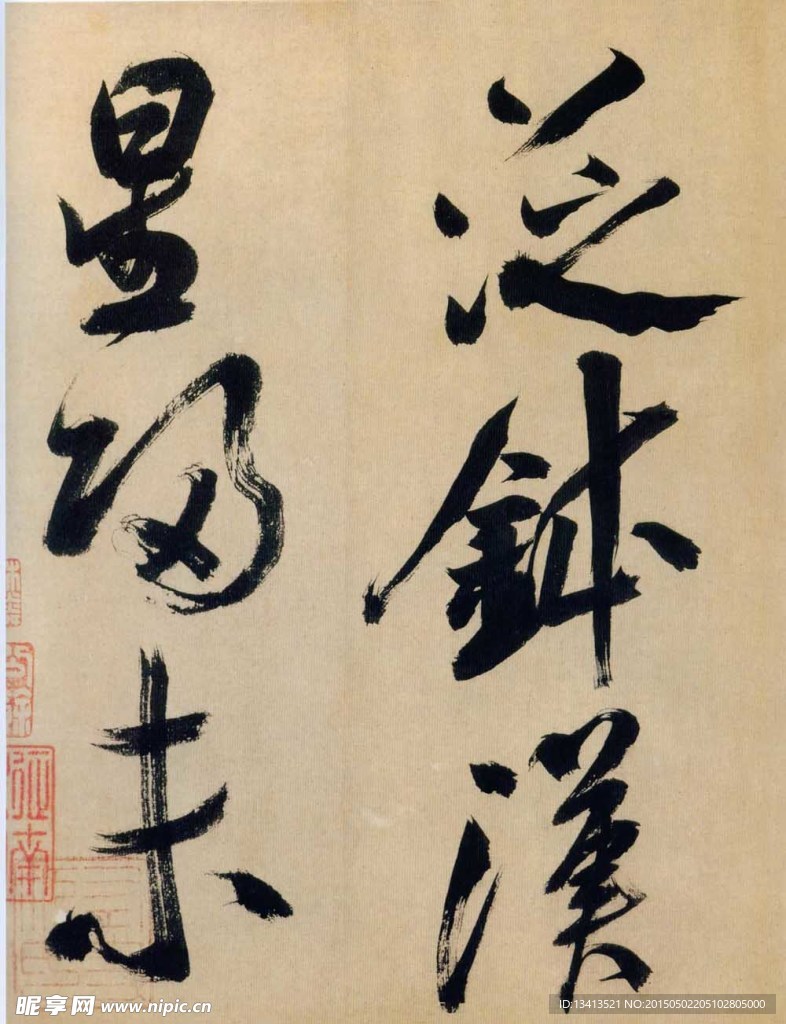 泛鉢漢
星歸未
昵享网 www.nipic.cn
ID:13413521 NO:20150502205102805000